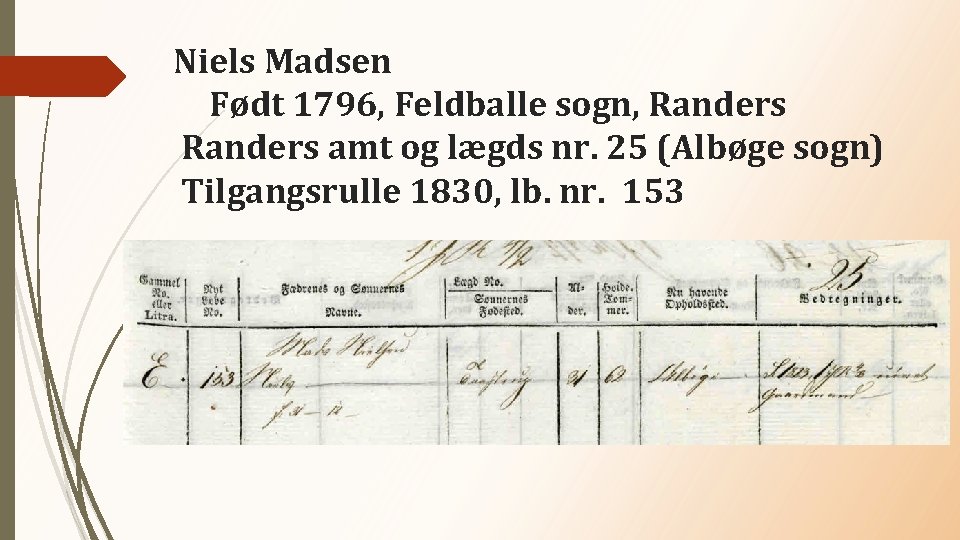 Niels Madsen
Født 1796, Feldballe sogn, Randers
Randers amt og lægds nr. 25 (Albøge sogn)
Tilgangsrulle 1830, lb. nr. 153
25
Gammel No. eller Litra.
Nyt Løbe No.
Fædrenes og Sønnernes Navne.
Lægd No.
Sønnernes Fødested.
Al- der.
Høide. Tom- mer.
Nu havende Opholdssted.
Bedregninger.
Mads Nielsen
E. 153 Niels 31 62
Gaardmand